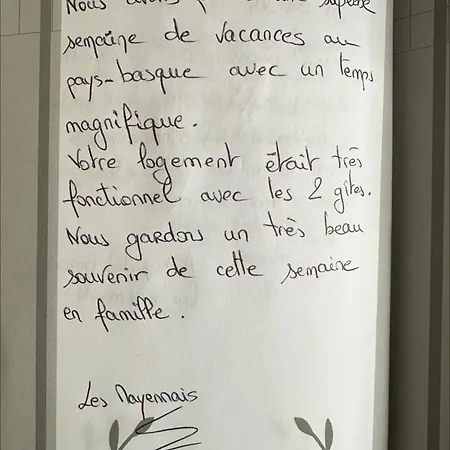 Nous avons une superbe
semaine de vacances au
pays-basque avec un temps
magnifique.
Votre logement était très
fonctionnel avec les 2 gîtes.
Nous gardons un très beau
souvenir de cette semaine
en famille.
Les Mayennais